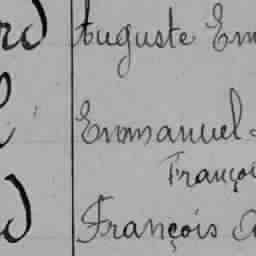 Auguste Em
Emmanuel
Françoi
François